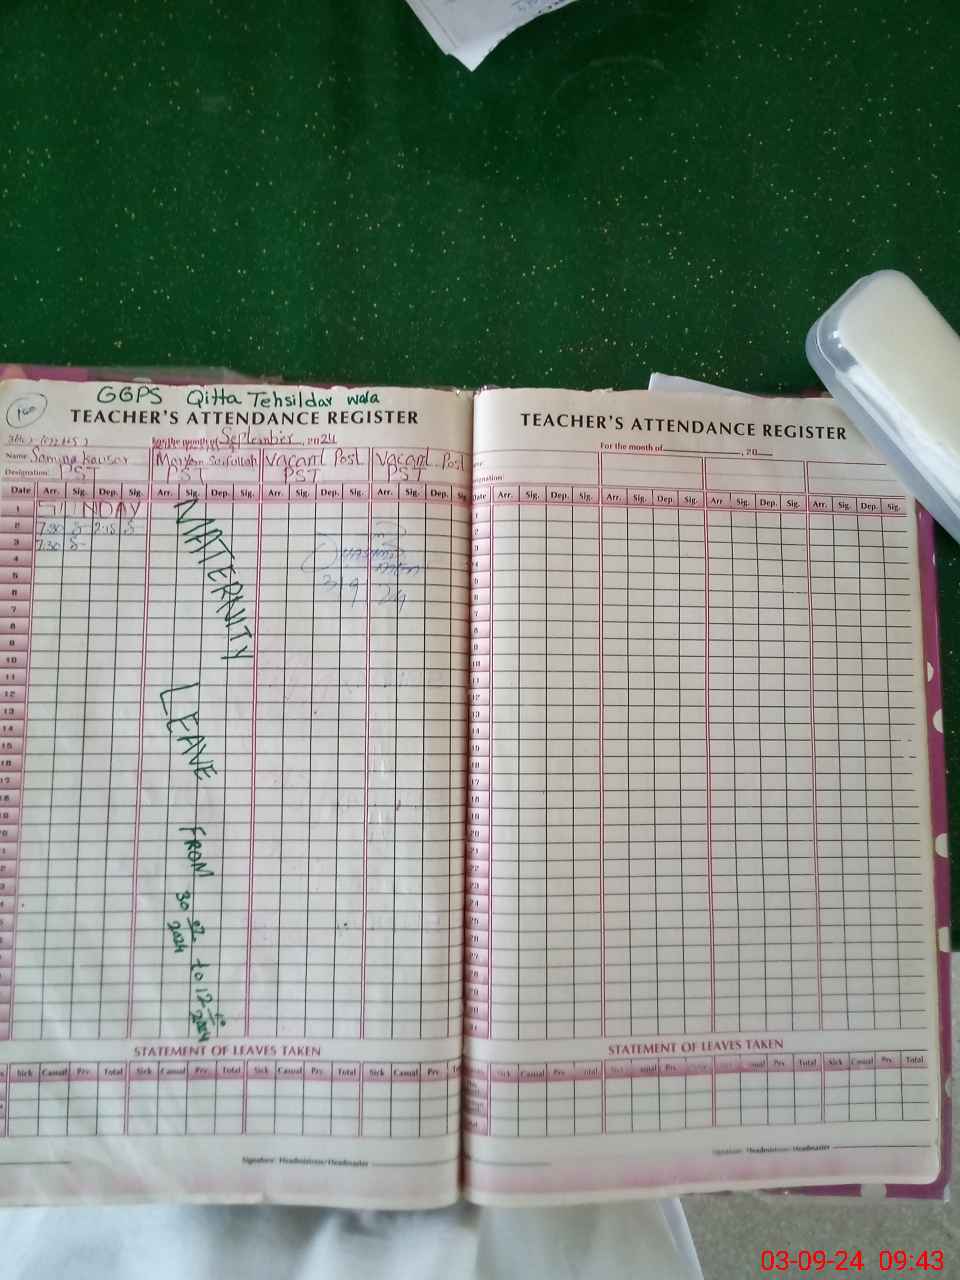 GGPS Qitta Tehsildar wala
TEACHER'S ATTENDANCE REGISTER
For the month of September, 2024
Name Samina Kausar Maryam Saifullah Vacant Post Vacant Post
Designation PST PST PST PST
Date Arr. Sig. Dep. Sig. Arr. Sig. Dep. Sig. Arr. Sig. Dep. Sig. Arr. Sig. Dep. Sig.
1 SUNDAY
2 7:30 S 2:15 S
3 7:30 S
4
5
6
7
8
9
10
11
12
13
14
15
16
17
18
19
20
MATERNITY LEAVE FROM 30 2024 to 12 2024
3/9 24
STATEMENT OF LEAVES TAKEN
Sick Casual Prv. Total Sick Casual Prv. Total Sick Casual Prv. Total Sick Casual Prv. Total
Signature: Headmistress/Headmaster
TEACHER'S ATTENDANCE REGISTER
For the month of , 20
Date Arr. Sig. Dep. Sig. Arr. Sig. Dep. Sig. Arr. Sig. Dep. Sig. Arr. Sig. Dep. Sig.
STATEMENT OF LEAVES TAKEN
Sick Casual Prv. Total Sick Casual Prv. Total Sick Casual Prv. Total
Signature: Headmistress/Headmaster
03-09-24 09:43